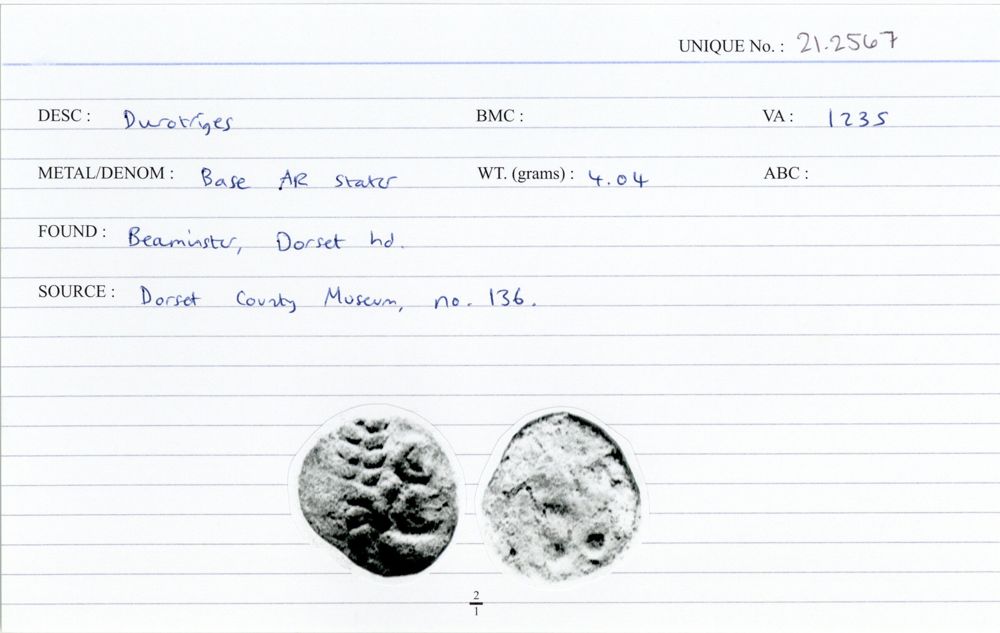 UNIQUE No. : 21.2567
DESC : Durotriges BMC : VA : 1235
METAL/DENOM : Base AR stater WT. (grams) : 4.04 ABC :
FOUND : Beaminster, Dorset hd.
SOURCE : Dorset County Museum, no. 136.
2
1